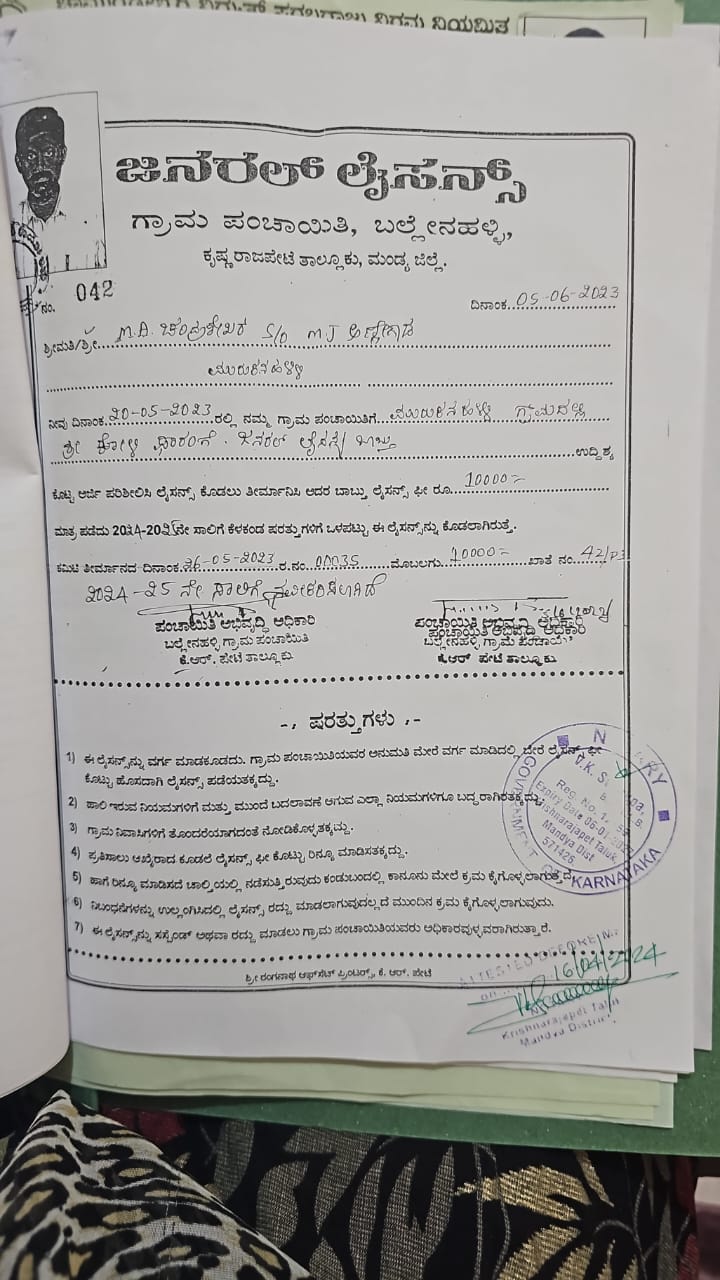 ಜನರಲ್ ಲೈಸನ್ಸ್
ಗ್ರಾಮ ಪಂಚಾಯಿತಿ, ಬಲ್ಲೇನಹಳ್ಳಿ,
ಕೃಷ್ಣರಾಜಪೇಟೆ ತಾಲ್ಲೂಕು, ಮಂಡ್ಯ ಜಿಲ್ಲೆ.
ನಂ. 042
ದಿನಾಂಕ 05-06-2023
ಶ್ರೀಮತಿ/ಶ್ರೀ M.A. ಚಂದ್ರಶೇಖರ S/o M J
ಮುರುಕನಹಳ್ಳಿ
ನೀವು ದಿನಾಂಕ 20-05-2023 ರಲ್ಲಿ ನಮ್ಮ ಗ್ರಾಮ ಪಂಚಾಯಿತಿಗೆ ಮುರುಕನಹಳ್ಳಿ ಗ್ರಾಮದಲ್ಲಿ
ಶ್ರೀ ಕೋಳಿ ಫಾರಂಗೆ. ಜನರಲ್ ಲೈಸನ್ಸ್ ಬಾಬ್ತು ಉದ್ದಿಶ್ಯ
ಕೊಟ್ಟ ಅರ್ಜಿ ಪರಿಶೀಲಿಸಿ ಲೈಸನ್ಸ್ ಕೊಡಲು ತೀರ್ಮಾನಿಸಿ ಅದರ ಬಾಬ್ತು ಲೈಸನ್ಸ್ ಫೀ ರೂ 10000=
ಮಾತ್ರ ಪಡೆದು 2024-2025ನೇ ಸಾಲಿಗೆ ಕೆಳಕಂಡ ಷರತ್ತುಗಳಿಗೆ ಒಳಪಟ್ಟು ಈ ಲೈಸನ್ಸ್‌ನ್ನು ಕೊಡಲಾಗಿರುತ್ತೆ.
ಕಮಿಟಿ ತೀರ್ಮಾನದ ದಿನಾಂಕ 26-05-2023 ರ.ನಂ. 00035 ಮೊಬಲಗು 10000= ಖಾತೆ ನಂ. 42/P3
2024-25 ನೇ ಸಾಲಿಗೆ ನವೀಕರಿಸಲಾಗಿದೆ
ಪಂಚಾಯಿತಿ ಅಭಿವೃದ್ಧಿ ಅಧಿಕಾರಿ
ಬಲ್ಲೇನಹಳ್ಳಿ ಗ್ರಾಮ ಪಂಚಾಯಿತಿ
ಕೆ.ಆರ್. ಪೇಟೆ ತಾಲ್ಲೂಕು
ಪಂಚಾಯಿತಿ ಅಭಿವೃದ್ಧಿ ಅಧಿಕಾರಿ
ಬಲ್ಲೇನಹಳ್ಳಿ ಗ್ರಾಮ ಪಂಚಾಯಿತಿ
ಕೆ.ಆರ್ ಪೇಟೆ ತಾಲ್ಲೂಕು
-, ಷರತ್ತುಗಳು ,-
1) ಈ ಲೈಸನ್ಸ್‌ನ್ನು ವರ್ಗ ಮಾಡಕೂಡದು. ಗ್ರಾಮ ಪಂಚಾಯಿತಿಯವರ ಅನುಮತಿ ಮೇರೆ ವರ್ಗ ಮಾಡಿದಲ್ಲಿ ಬೇರೆ ಲೈಸನ್ಸ್ ಫೀ
ಕೊಟ್ಟು ಹೊಸದಾಗಿ ಲೈಸನ್ಸ್ ಪಡೆಯತಕ್ಕದ್ದು.
2) ಹಾಲಿ ಇರುವ ನಿಯಮಗಳಿಗೆ ಮತ್ತು ಮುಂದೆ ಬದಲಾವಣೆ ಆಗುವ ಎಲ್ಲಾ ನಿಯಮಗಳಿಗೂ ಬದ್ಧರಾಗಿರತಕ್ಕದ್ದು.
3) ಗ್ರಾಮ ನಿವಾಸಿಗಳಿಗೆ ತೊಂದರೆಯಾಗದಂತೆ ನೋಡಿಕೊಳ್ಳತಕ್ಕದ್ದು.
4) ಪ್ರತಿಸಾಲು ಆಖೈರಾದ ಕೂಡಲೆ ಲೈಸನ್ಸ್ ಫೀ ಕೊಟ್ಟು ರಿನ್ಯೂ ಮಾಡಿಸತಕ್ಕದ್ದು.
5) ಹಾಗೆ ರಿನ್ಯೂ ಮಾಡಿಸದೆ ಚಾಲ್ತಿಯಲ್ಲಿ ನಡೆಸುತ್ತಿರುವುದು ಕಂಡುಬಂದಲ್ಲಿ ಕಾನೂನು ಮೇಲೆ ಕ್ರಮ ಕೈಗೊಳ್ಳಲಾಗುತ್ತದೆ.
6) ನಿಬಂಧನೆಗಳನ್ನು ಉಲ್ಲಂಗಿಸಿದಲ್ಲಿ ಲೈಸನ್ಸ್ ರದ್ದು ಮಾಡಲಾಗುವುದಲ್ಲದೆ ಮುಂದಿನ ಕ್ರಮ ಕೈಗೊಳ್ಳಲಾಗುವುದು.
7) ಈ ಲೈಸನ್ಸ್‌ನ್ನು ಸಸ್ಪೆಂಡ್ ಅಥವಾ ರದ್ದು ಮಾಡಲು ಗ್ರಾಮ ಪಂಚಾಯಿತಿಯವರು ಅಧಿಕಾರವುಳ್ಳವರಾಗಿರುತ್ತಾರೆ.
ಶ್ರೀ ರಂಗನಾಥ ಆಫ್‌ಸೆಟ್ ಪ್ರಿಂಟರ್ಸ್, ಕೆ. ಆರ್. ಪೇಟೆ
GOVERNMENT OF KARNATAKA
V.K.
Reg. No.
Expiry Date
Krishnarajapet Taluk
Mandya Dist
571426
ATTESTED BEFORE ME
on 16/04/2024
Krishnarajapet Taluk
Mandya District